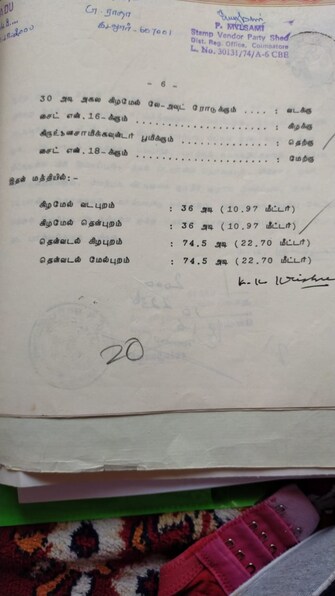 டா. ராஜா
கடலூர்-607001
P. MYLSAMI
Stamp Vendor Party Shed
Dist. Reg. Office, Coimbatore
L. No. 30131/74/A-6 CBE
- 6 -
30 அடி அகல கிழமேல் லே-அவுட் ரோடுக்கும் .... : வடக்கு
சைட் எண்.16-க்கும் .... : கிழக்கு
கிருஷ்ணசாமிக்கவுண்டர் பூமிக்கும் .... : தெற்கு
சைட் எண்.18-க்கும் .... : மேற்கு
இதன் மத்தியில்:-
கிழமேல் வடபுறம் : 36 அடி (10.97 மீட்டர்)
கிழமேல் தென்புறம் : 36 அடி (10.97 மீட்டர்)
தென்வடல் கிழபுறம் : 74.5 அடி (22.70 மீட்டர்)
தென்வடல் மேல்புறம் : 74.5 அடி (22.70 மீட்டர்)
20